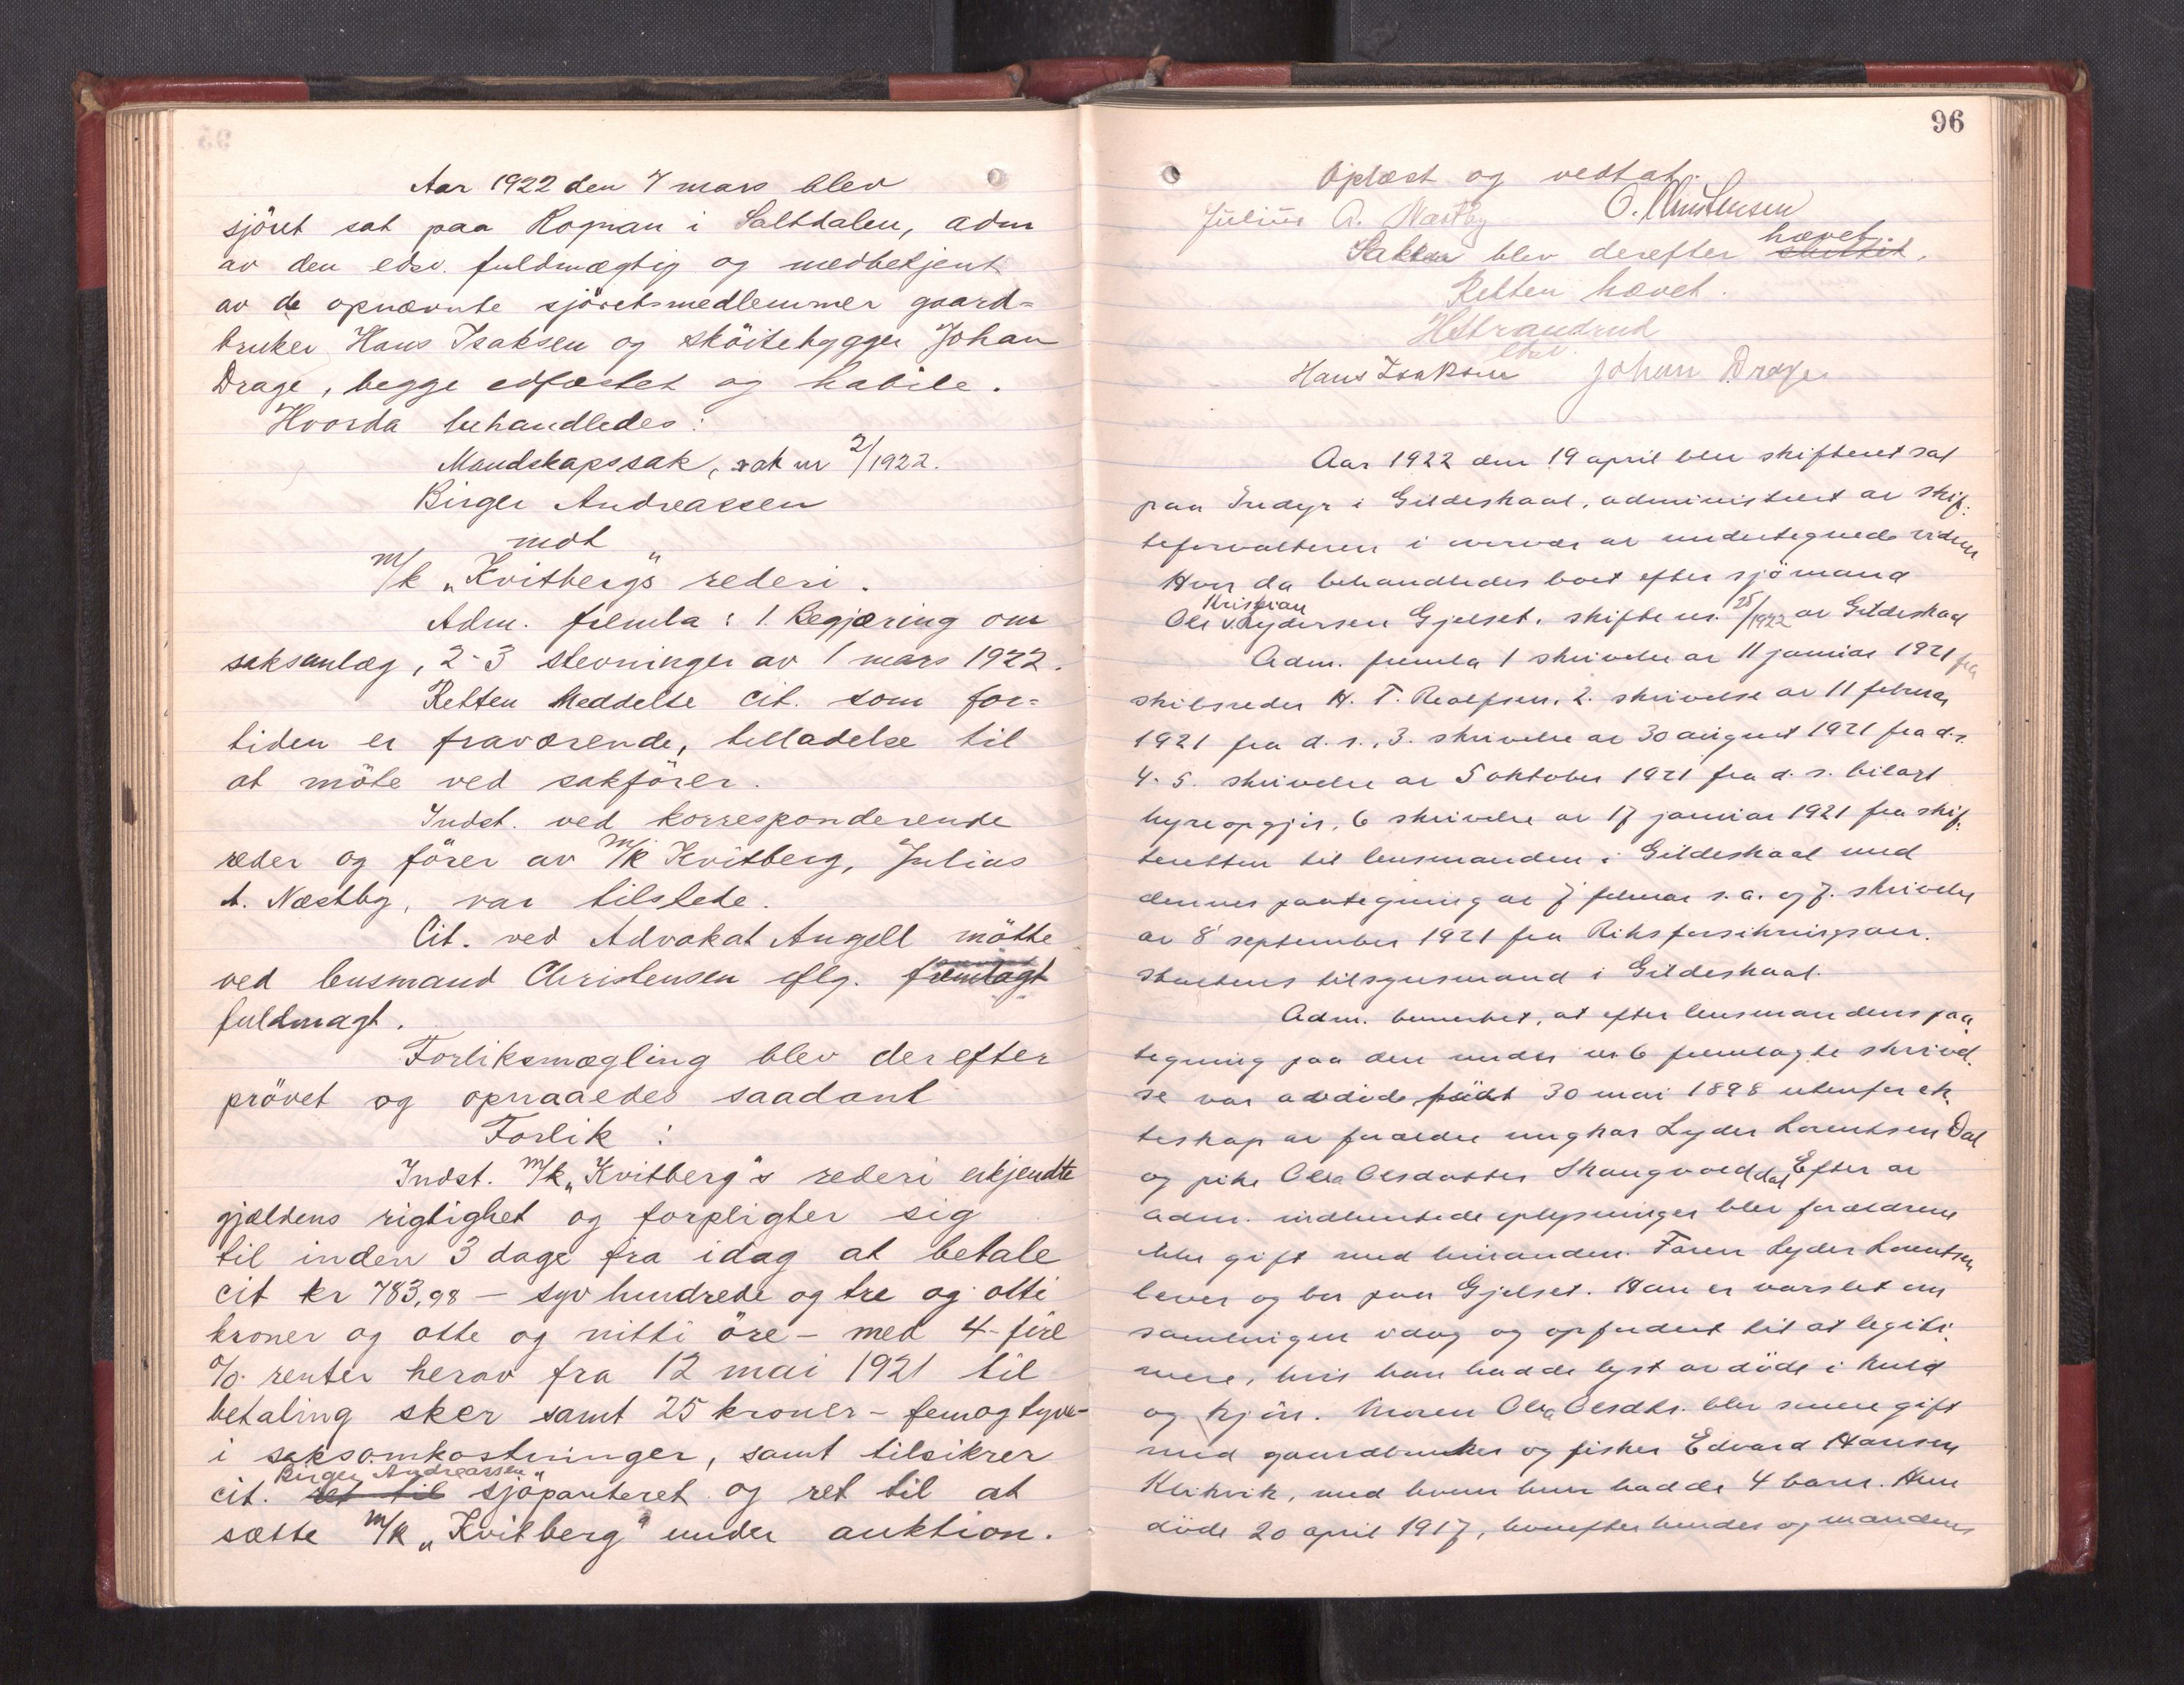 Aar 1922 den 7 mars blev
sjöret sat paa Rognan i Saltdalen, adm
av den edsv. fuldmægtig og medbetjent
av de opnævnte sjöretsmedlemmer gaard=
bruker Hans Isaksen og sköitebygger Johan
Drage, begge edfæstet og habile.
Hvorda behandledes:
Mandskapssak, sak nr 2/1922.
Birger Andreassen
mot
m/k „Kvitberg"s rederi.
Adm. fremla: 1. Begjæring om
saksanlæg, 2-3 stevninger av 1 mars 1922.
Retten meddelte cit. som for=
tiden er fraværende, tilladelse til
at möte ved sakförer.
Indst. ved korresponderende
reder og förer av m/k Kvitberg, Julius
A. Næstby, var tilstede.
Cit. ved Advokat Angell mötte
ved lensmand Christensen eflg. fremlagt
fuldmagt.
Forliksmægling blev derefter
prövet og opnaaedes saadant
Forlik:
Indst. m/k „Kvitberg"s rederi erkjendte
gjældens rigtighet og forpligter sig
til inden 3 dage fra idag at betale
cit kr 783,98 – syv hundrede og tre og otti
kroner og otte og nitti öre – med 4 - fire
% renter herav fra 12 mai 1921 til
betaling sker samt 25 kroner – femogtyve –
i saksomkostninger, samt tilsikrer
cit. Birger Andreassen ret til sjöpanteret og ret til at
sætte m/k „Kvitberg" under auktion.
96
Oplæst og vedtat.
Julius A. Næstby O. Christensen
Sakken blev derefter sluttet hævet.
Retten hævet.
Hans Isaksen Johan Drage
Aar 1922 den 19 april blev skifteret sat
paa Indyr i Gildeskaal, administrert av skif-
teforvalteren i nærvær av undertegnede vidner
Hvor da behandledes boet efter sjömand
Ole Kristian Lydersen Gjelset, skifte nr. 25/1922 av Gildeskaal
Adm. fremla 1 skrivelse av 11 januar 1921 fra
skibsreder H. T. Realfsen, 2. skrivelse av 11 februar
1921 fra d. s., 3. skrivelse av 30 august 1921 fra d. s.
4-5. skrivelse av 5 oktober 1921 fra d. s. bilagt
hyreopgjör, 6 skrivelse av 17 januar 1921 fra skif-
teretten til lensmanden i Gildeskaal med
dennes paategning av 7 februar s. a. og 7. skrivelse
av 8 september 1921 fra Riksforsikringsan-
staltens tilsynsmand i Gildeskaal.
Adm. bemerket, at efter lensmandens paa-
tegning paa den under nr 6 fremlagte skrivel-
se var avdöde födt 30 mai 1898 utenfor ek-
teskap av forældre ungkar Lyder Lorentsen Dal
og pike Olea Olsdatter Skaugvolddal. Efter av
adm. indhentede oplysninger blev forældrene
ikke gift med hinanden. Faren Lyder Lorentsen
lever og bor paa Gjelset. Han er varslet om
samlingen idag og opfordret til at legiti-
mere, hvis han hadde lyst avdöde i kuld
og kjön. Moren Olea Olsdtr. blev senere gift
med gaardbruker og fisker Edvard Hansen
Klikvik, med hvem hun hadde 4 barn. Hun
döde 20 april 1917, hvorefter hendes og mandens